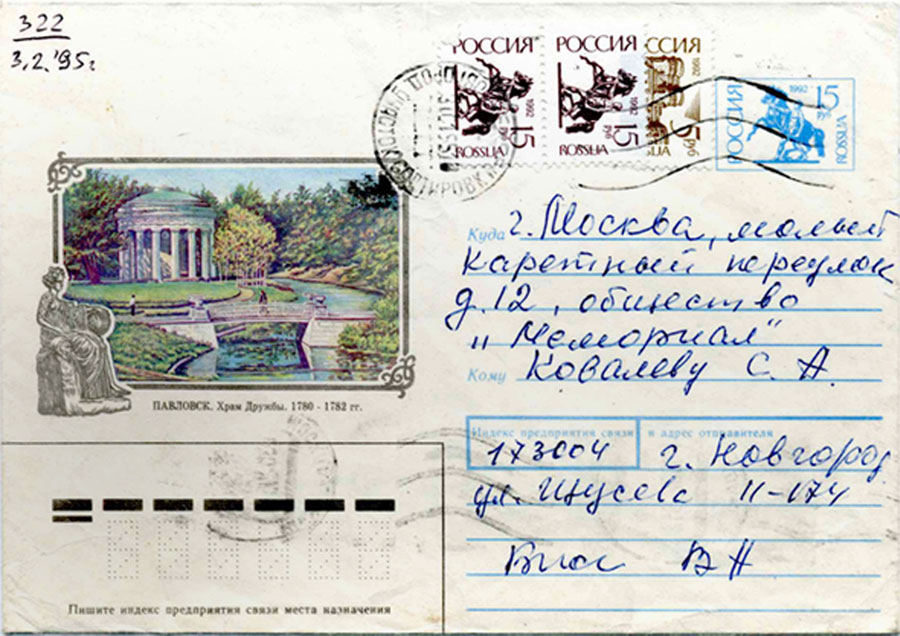 322
3.2.'95г
РОССИЯ
1992
15
руб
ROSSIJA
РОССИЯ
1992
15
руб
ROSSIJA
ССИЯ
1992
5 руб
РОССИЯ
1992
15
руб
ROSSIJA
Куда г. Москва, малый
каретный переулок
д. 12, общество
"Мемориал"
Кому Ковалеву С. А.
ПАВЛОВСК. Храм Дружбы. 1780 - 1782 гг.
Индекс предприятия связи и адрес отправителя
173004 г. Новгород
ул. Щусева 11-174
В Н
Пишите индекс предприятия связи места назначения